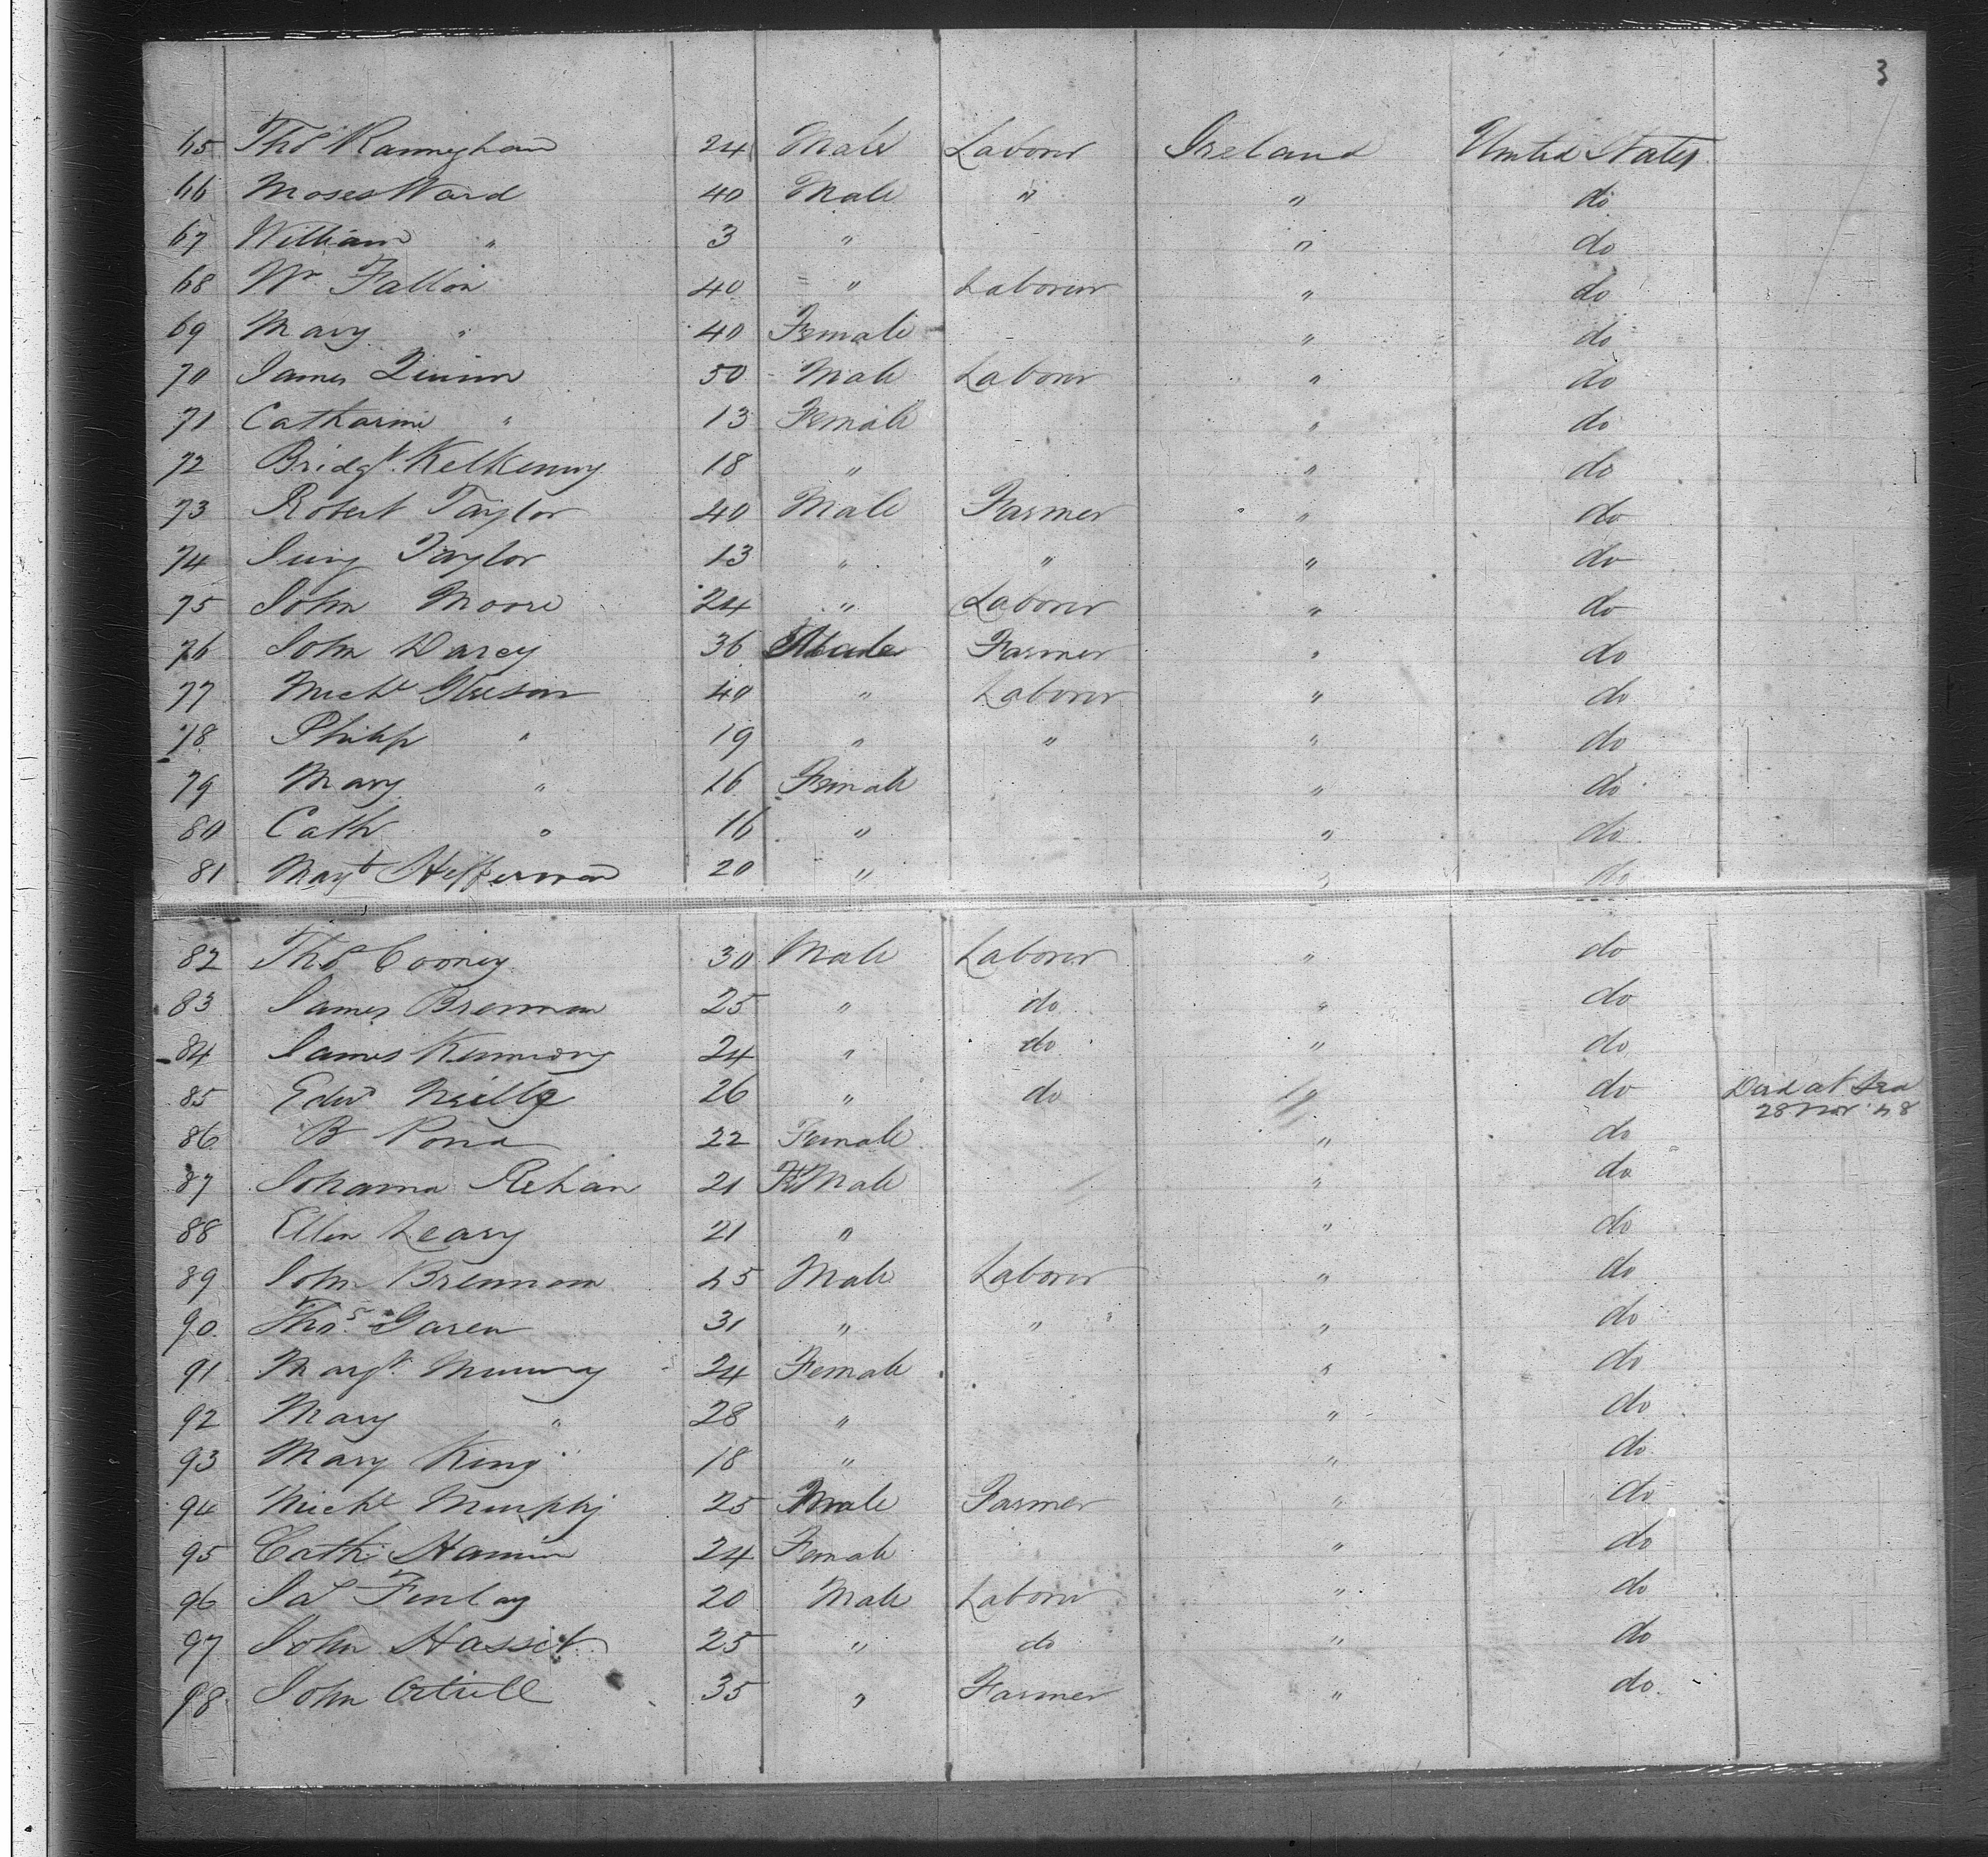 3
65 Thos Rannighan 24 Male Laborer Ireland United States
66 Moses Ward 40 Male " " do
67 William " 3 " " do
68 Wm Fallon 40 " Laborer " do
69 Mary " 40 Female " do
70 James Quinn 50 Male Laborer " do
71 Catharine " 13 Female " do
72 Bridgt. Kelkenny 18 " " do
73 Robert Taylor 40 Male Farmer " do
74 Taylor 13 " " " do
75 John Moore 24 " Laborer " do
76 John Darcy 36 Male Farmer " do
77 Michl Gleeson 40 " Laborer " do
78 Philip " 19 " " " do
79 Mary " 16 Female " do
80 Cath " 16 " " do
81 Margt Heffernan 20 " " do
82 Thos Cooney 30 Male Laborer " do
83 James Brennan 25 " do " do
84 James 24 " do " do
85 Edwd Neille 26 " do " do Died at Sea
28 Nov. 48
86 B 22 Female " do
87 Johanna Rehan 21 FeMale " do
88 Ellen Leary 21 " " do
89 John Brennan 25 Male Laborer " do
90 Thos. Garen 31 " " " do
91 Margt. Murray 24 Female " do
92 Mary " 28 " " do
93 Mary King 18 " " do
94 Michl Murphy 25 Male Farmer " do
95 Cath Hannin 24 Female " do
96 Jas Finlay 20 Male Laborer " do
97 John Hasset 25 " do " do
98 John 35 " Farmer " do.